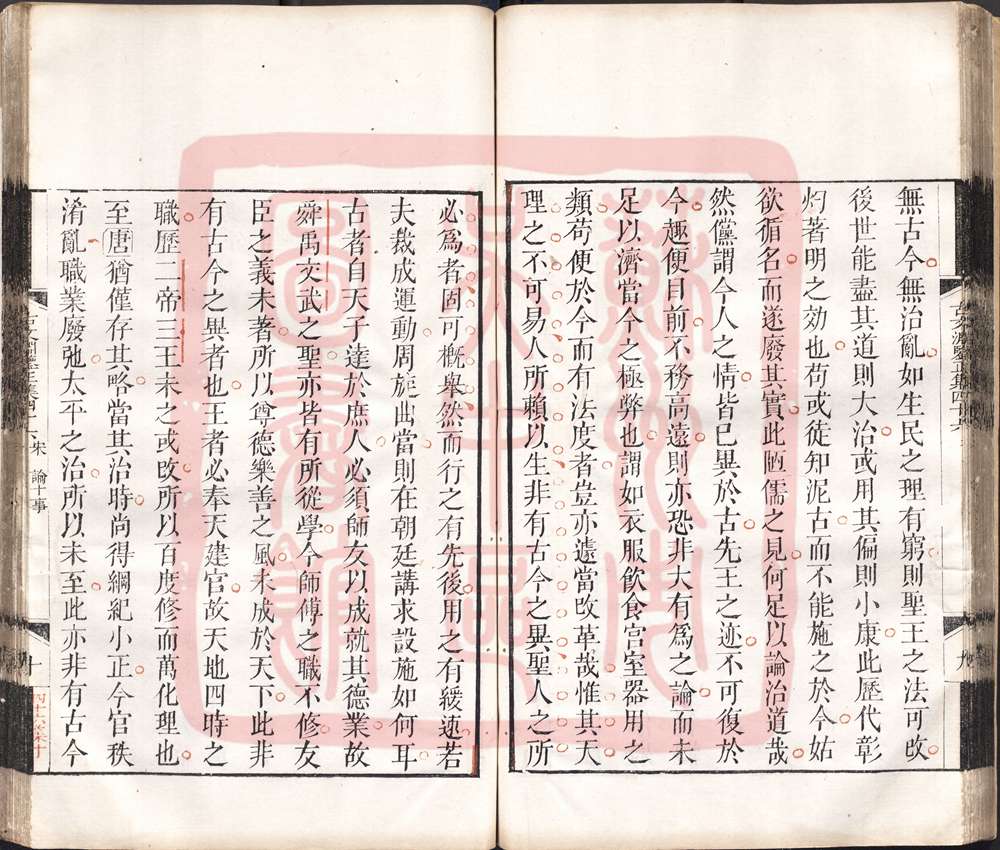 無古今無治亂如生民之理有窮則聖王之法可改
後世能盡其道則大治或用其偏則小康此歷代彰
灼著明之効也苟或徒知泥古而不能施之於今姑
欲循名而遂廢其實此陋儒之見何足以論治道哉
然儻謂今人之情皆已異於古先王之迹不可復於
今趣便目前不務高遠則亦恐非大有爲之論而未
足以濟當今之極弊也謂如衣服飲食宫室器用之
類苟便於今而有法度者豈亦遽當改革哉惟其天
理之不可易人所賴以生非有古今之異聖人之所
必爲者固可槪舉然而行之有先後用之有緩速若
夫裁成運動周旋曲當則在朝廷講求設施如何耳
古者自天子達於庶人必須師友以成就其德業故
舜禹文武之聖亦皆有所從學今師傅之職不修友
臣之義未著所以尊德樂善之風未成於天下此非
有古今之異者也王者必奉天建官故天地四時之
職歷二帝三王未之或改所以百度修而萬化理也
至唐猶僅存其略當其治時尚得綱紀小正今官秩
淆亂職業廢弛太平之治所以未至此亦非有古今
宋 論十事
十